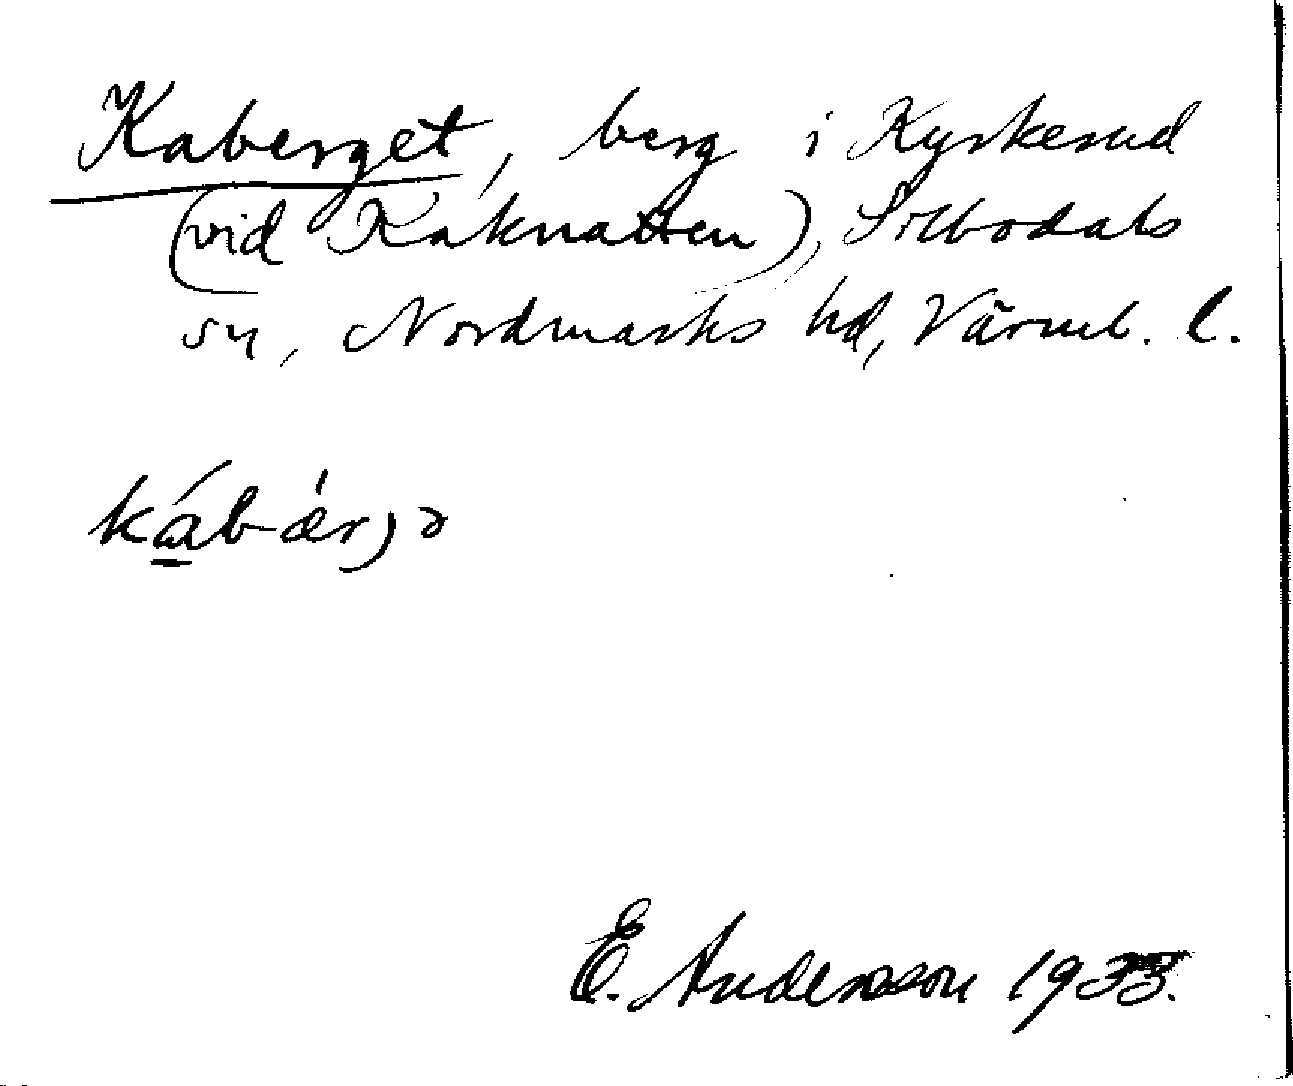 Kaberget, berg i Kyrkerud
(vid Kaknatten), Silbodals
sn, Nordmarks hd, Värml. l.
kábǽrjə
E. Andersson 1933.